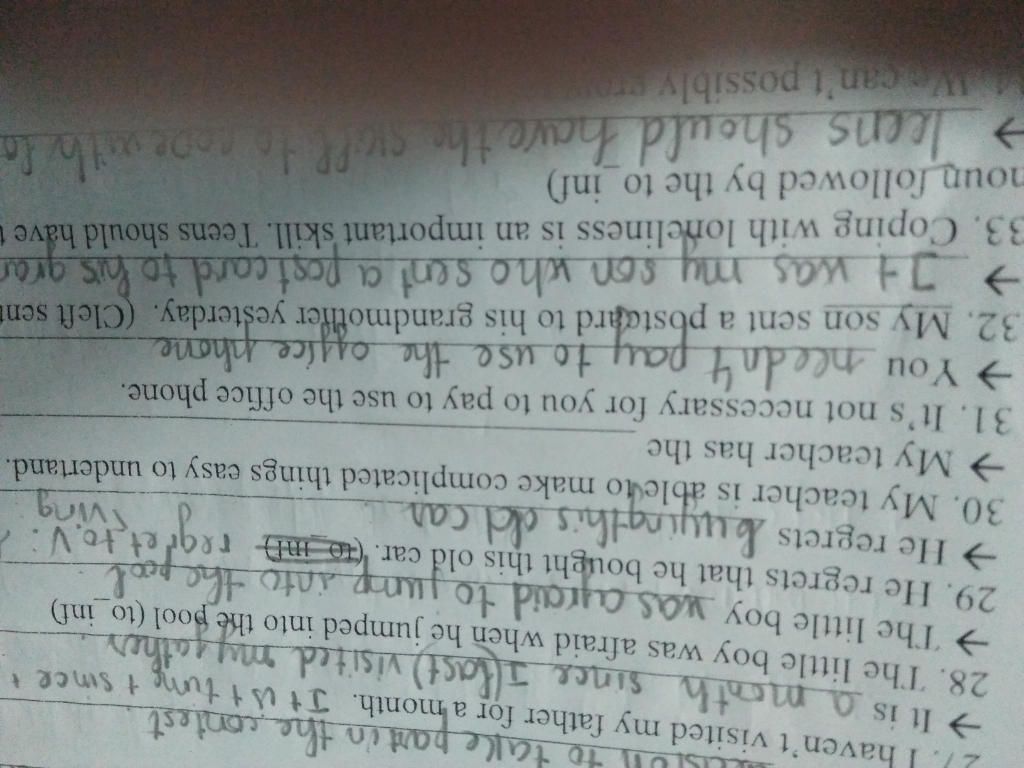 to take part in the contest
27. I haven't visited my father for a month. It is + time + since +
→ It is a month since I (last) visited my father.
28. The little boy was afraid when he jumped into the pool (to_inf)
→ The little boy was afraid to jump into the pool
29. He regrets that he bought this old car. (to_inf) regret to V:
→ He regrets buying this old car
30. My teacher is able to make complicated things easy to undertand.
→ My teacher has the
31. It's not necessary for you to pay to use the office phone.
→ You needn't pay to use the office phone
32. My son sent a postcard to his grandmother yesterday. (Cleft sent
→ It was my son who sent a postcard to his gran
33. Coping with loneliness is an important skill. Teens should have t
noun followed by the to_inf)
→ Teens should have the skill to cope with lo
We can't possibly